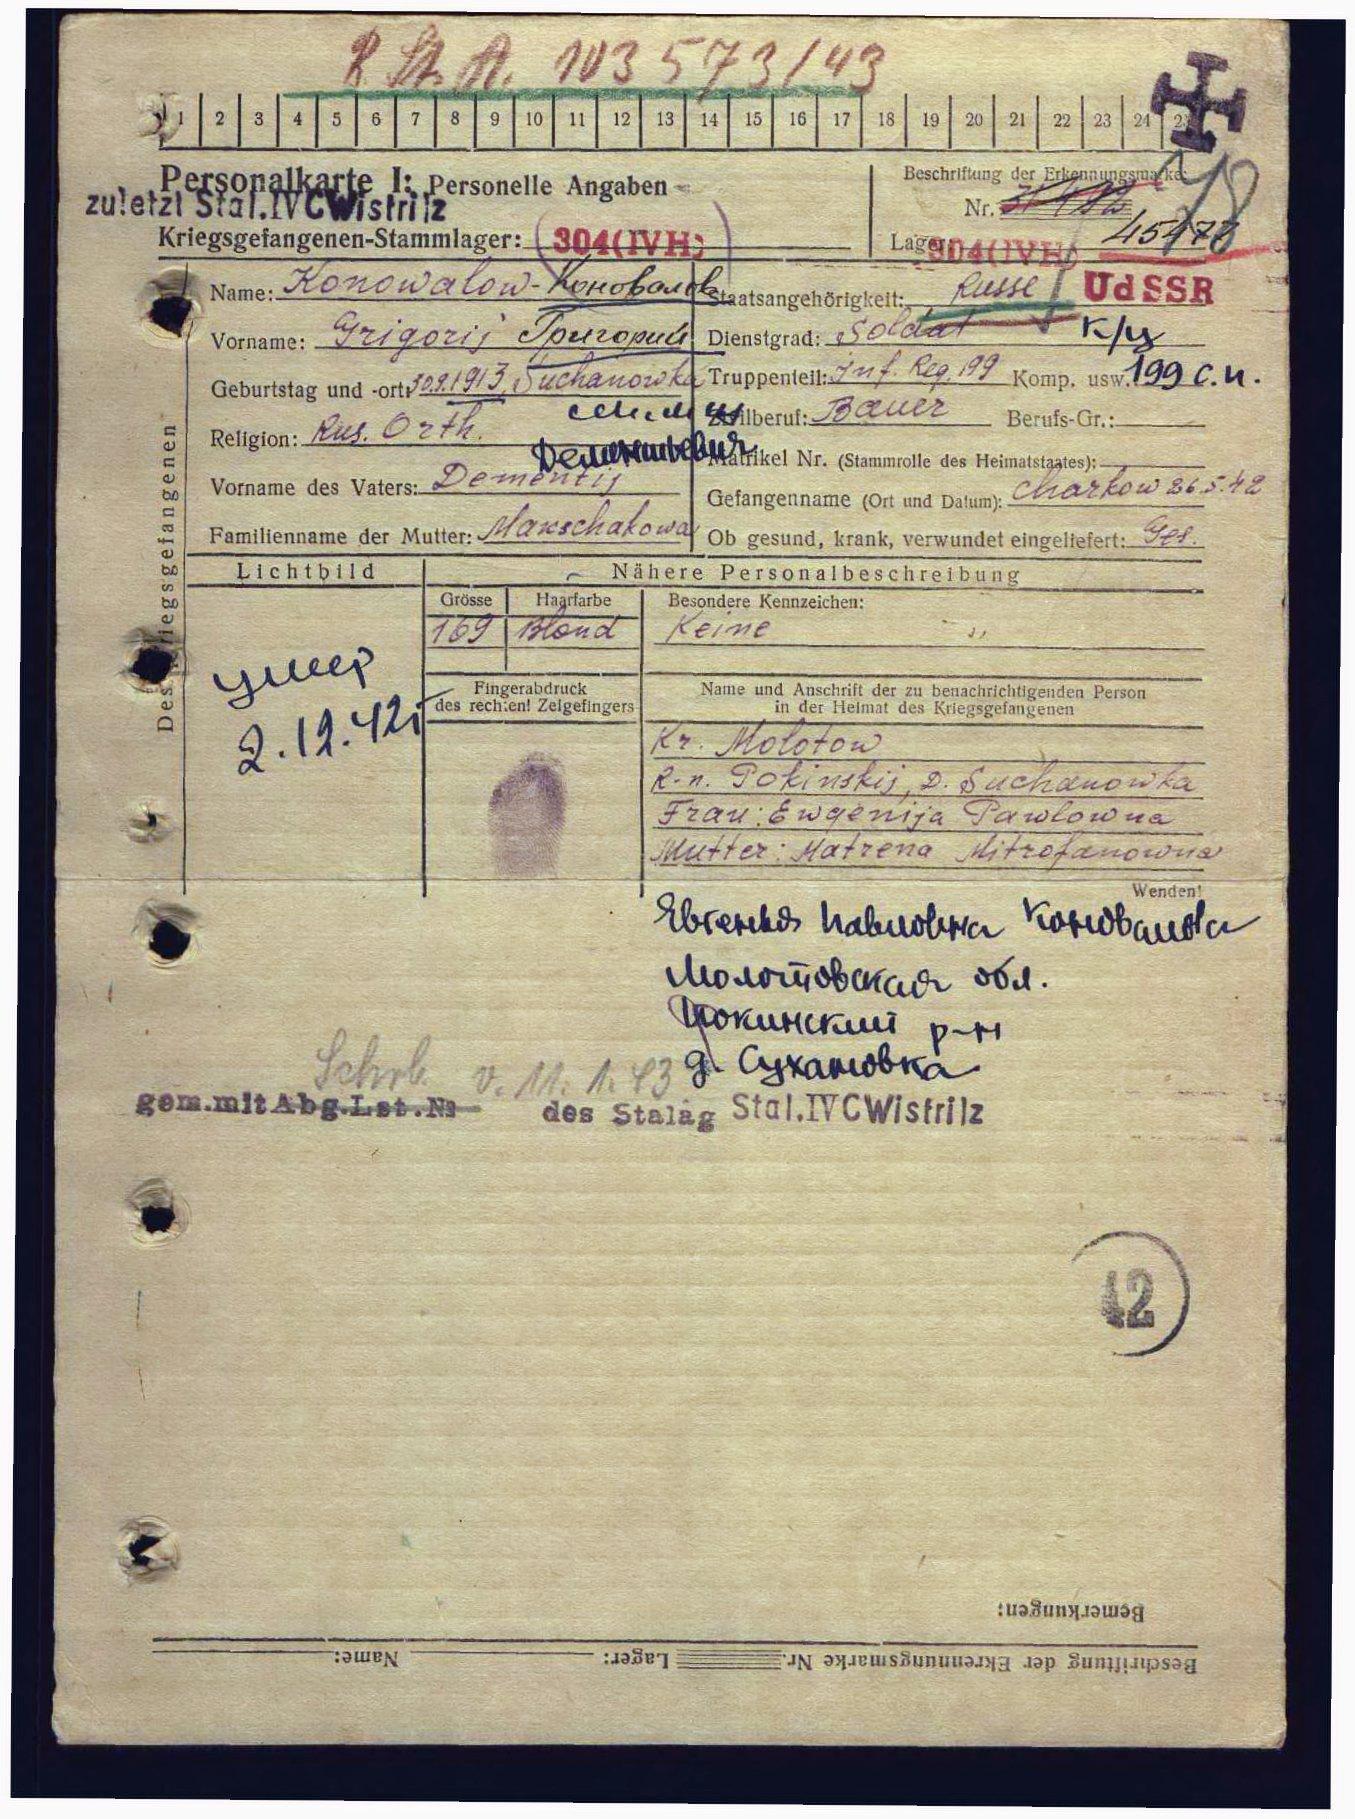 R. St. A. 103573/43
1 2 3 4 5 6 7 8 9 10 11 12 13 14 15 16 17 18 19 20 21 22 23 24 25
Personalkarte I: Personelle Angaben
Beschriftung der Erkennungsmarke:
zuletzt Stal.IVC Wistritz
Nr.
Kriegsgefangenen-Stammlager: 304(IVH)
Lager: 304(IVH)
Des Kriegsgefangenen
Name: Konowalow - Коновалов
Staatsangehörigkeit: Russe UdSSR
Vorname: Grigorij Григорий
Dienstgrad: Soldat к/ц
Geburtstag und -ort: 30.9.1913, Suchanowka
Truppenteil: Inf. Reg. 199 Komp. usw. 199 с.п.
Religion: Rus. Orth.
Zivilberuf: Bauer Berufs-Gr.:
Дементьевич
Matrikel Nr. (Stammrolle des Heimatstaates):
Vorname des Vaters: Dementij
Gefangenname (Ort und Datum): Charkow 26.5.42
Familienname der Mutter: Manschakowa
Ob gesund, krank, verwundet eingeliefert: Ges.
Lichtbild
Nähere Personalbeschreibung
Grösse Haarfarbe Besondere Kennzeichen:
169 Blond Keine
умер
2.12.42г
Fingerabdruck
des rechten! Zeigefingers
Name und Anschrift der zu benachrichtigenden Person
in der Heimat des Kriegsgefangenen
Kr. Molotow
R-n. Pokinskij, D. Suchanowka
Frau: Ewgenija Pawlowna
Mutter: Matrena Mitrofanowna
Wenden!
Евгенья Павловна Коновалова
Молотовская обл.
р-н
д. Сухановка
Schrb. v. 11.1.43
gem.mit Abg.Lst.No des Stalag Stal.IVC Wistritz
42
Bemerkungen:
Beschriftung der Erkennungsmarke Nr. Lager: Name: